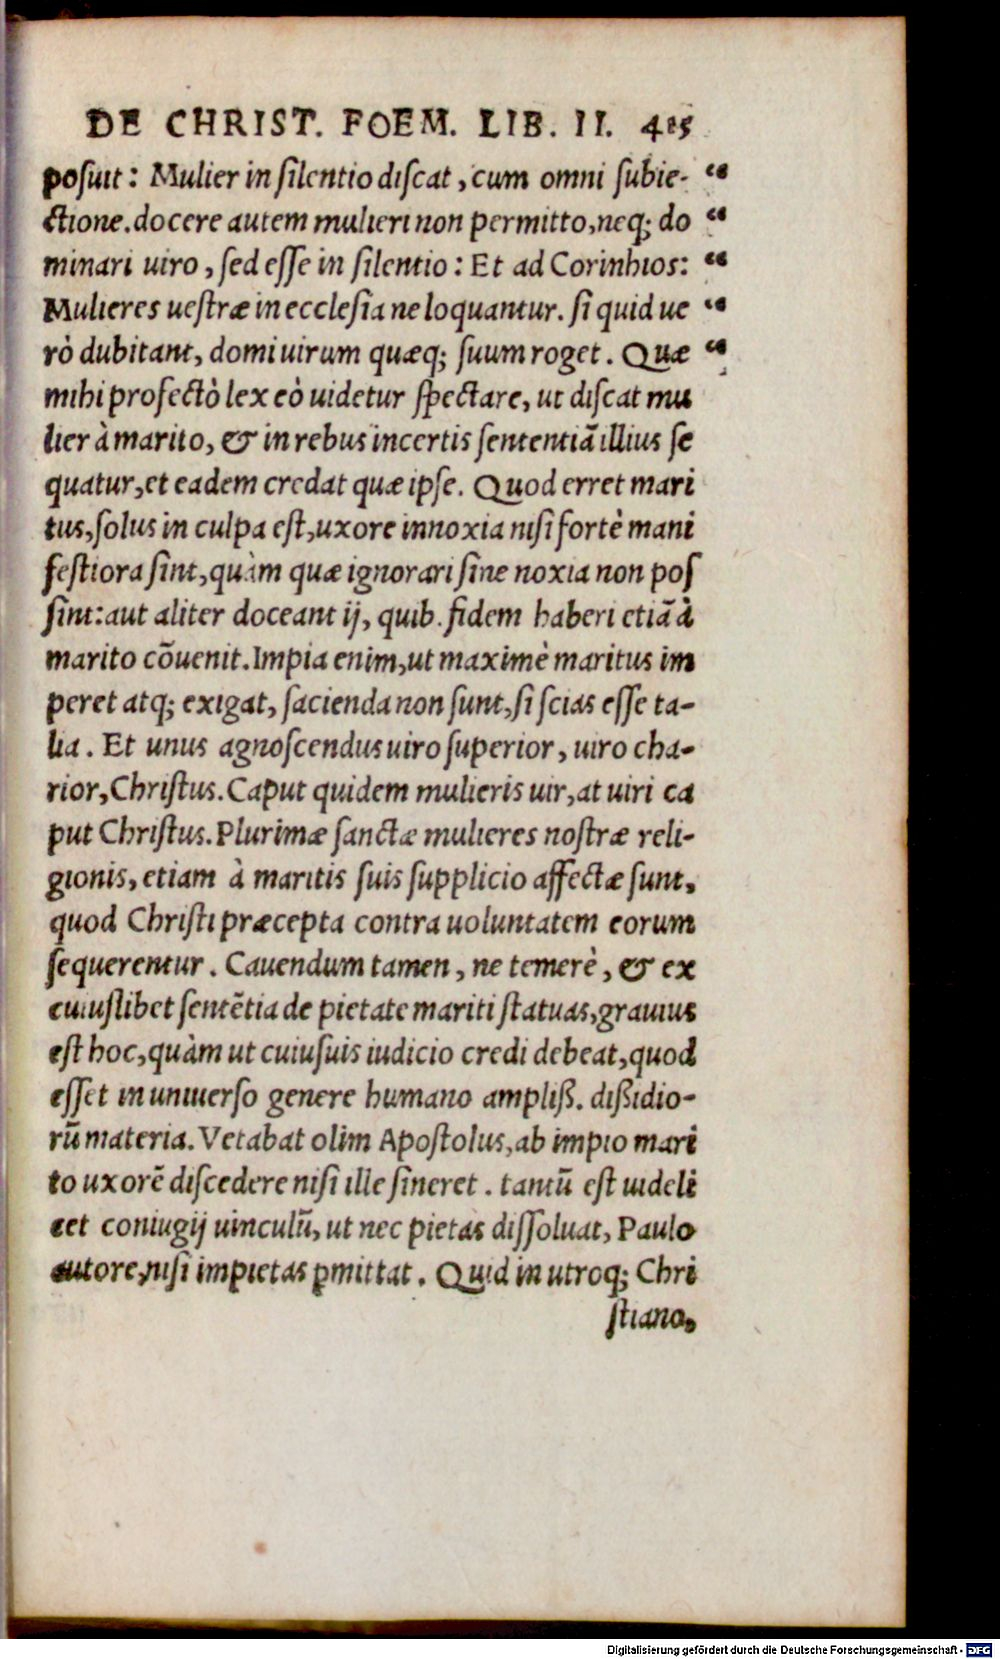 DE CHRIST. FOEM. LIB. II. 415
posuit: Mulier in silentio discat, cum omni subie- “
ctione. docere autem mulieri non permitto, neq; do “
minari uiro, sed esse in silentio: Et ad Corinhios: “
Mulieres uestræ in ecclesia ne loquantur. si quid ue “
rò dubitant, domi uirum quæq; suum roget. Quæ “
mihi profectò lex eò uidetur spectare, ut discat mu
lier à marito, & in rebus incertis sententiā illius se
quatur, et eadem credat quæ ipse. Quod erret mari
tus, solus in culpa est, uxore innoxia nisi fortè mani
festiora sint, quàm quæ ignorari sine noxia non pos
sint: aut aliter doceant ij, quib. fidem haberi etiā à
marito cōuenit. Impia enim, ut maximè maritus im
peret atq; exigat, facienda non sunt, si scias esse ta-
lia. Et unus agnoscendus uiro superior, uiro cha-
rior, Christus. Caput quidem mulieris uir, at uiri ca
put Christus. Plurimæ sanctæ mulieres nostræ reli-
gionis, etiam à maritis suis supplicio affectæ sunt,
quod Christi præcepta contra uoluntatem eorum
sequerentur. Cauendum tamen, ne temerè, & ex
cuiuslibet sentētia de pietate mariti statuas, grauius
est hoc, quàm ut cuiusuis iudicio credi debeat, quod
esset in uniuerso genere humano ampliß. dißidio-
rū materia. Vetabat olim Apostolus, ab impio mari
to uxorē discedere nisi ille sineret. tantū est uideli
cet coniugij uinculū, ut nec pietas dissoluat, Paulo
autore, nisi impietas ꝑmittat. Quid in utroq; Chri
stiano,
Digitalisierung gefördert durch die Deutsche Forschungsgemeinschaft - DFG